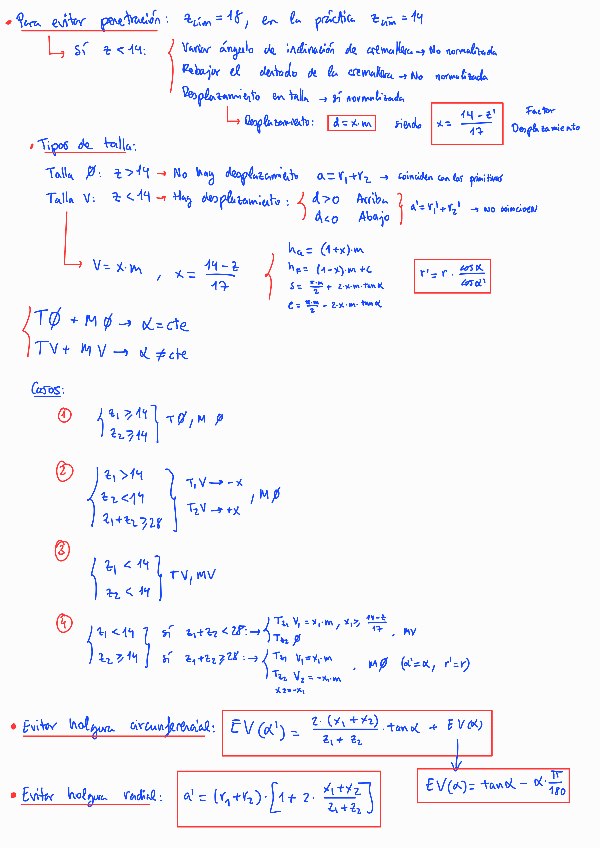 • Para evitar penetración: z_lím = 18, en la práctica z_lím = 14
↳ Sí z < 14: Variar ángulo de inclinación de cremallera → No normalizada
Rebajar el dentado de la cremallera → No normalizada
Desplazamiento en talla → sí normalizada
↳ Desplazamiento: d = x·m siendo x = (14 - z')/17 Factor Desplazamiento
• Tipos de talla:
Talla Ø: z > 14 → No hay desplazamiento a = r₁+r₂ → coinciden con las primitivas
Talla V: z < 14 → Hay desplazamiento: { d>0 Arriba
d<0 Abajo } a' = r₁'+r₂' → no coinciden
↳ V = x·m , x = (14 - z)/17
ha = (1+x)·m
hf = (1-x)·m + c
s = π·m/2 + 2·x·m·tanα
e = π·m/2 - 2·x·m·tanα
r' = r · cosα/cosα'
TØ + MØ → α = cte
TV + MV → α ≠ cte
Casos:
① { z₁ ≥ 14
z₂ ≥ 14 } TØ, MØ
② { z₁ > 14
z₂ < 14
z₁+z₂ ≥ 28 } T₁V → -x
T₂V → +x , MØ
③ { z₁ < 14
z₂ < 14 } TV, MV
④ { z₁ < 14
z₂ ≥ 14 } sí z₁+z₂ < 28: → { Tz₁ V₁ = x₁·m, x₁ ≥ (14-z)/17
Tz₂ Ø , MV
sí z₁+z₂ ≥ 28: → { Tz₁ V₁ = x₁·m
Tz₂ V₂ = -x₁·m
x₂ = -x₁ , MØ (α'=α, r'=r)
• Evitar holgura circunferencial: EV(α') = 2·(x₁+x₂)/(z₁+z₂) · tanα + EV(α)
EV(α) = tanα - α·π/180
• Evitar holgura radial: a' = (r₁+r₂)·[1 + 2·(x₁+x₂)/(z₁+z₂)]